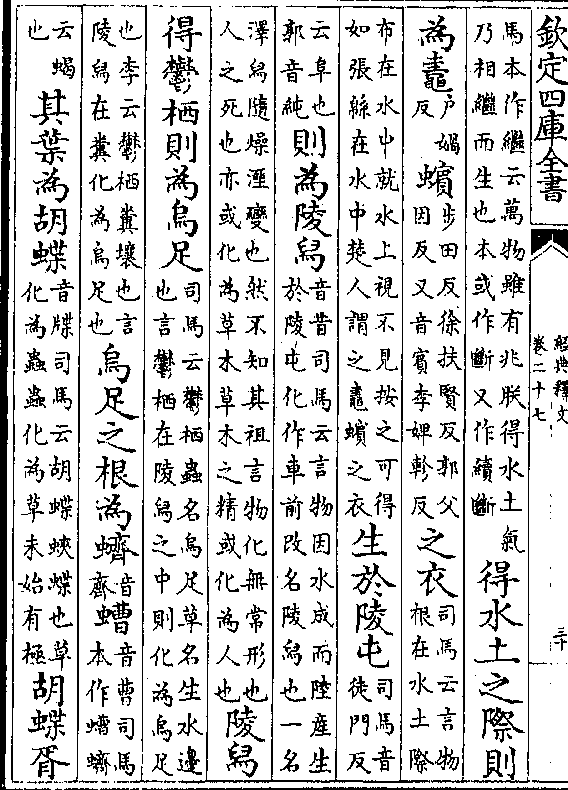 欽定四庫全書
經典釋文
卷二十七
三十
馬本作繼云萬物雖有兆朕得水土氣
乃相繼而生也本或作斷又作續斷
得水土之際則
為𪓰
户媧
反
蠙
步田反徐扶賢反郭父
因反又音賓李婢軫反
之衣
司馬云言物
根在水土際
布在水中就水上視不見按之可得
如張緜在水中楚人謂之𪓰蠙之衣
生於陵屯
司馬音
徒門反
云阜也
郭音純
則為陵舄
音昔司馬云言物因水成而陸産生
於陵屯化作車前改名陵舄也一名
澤舄隨燥溼變也然不知其祖言物化無常形也
人之死也亦或化為草木草木之精或化為人也
陵舄
得鬱栖則為烏足
司馬云鬱栖蟲名烏足草名生水邊
也言鬱栖在陵舄之中則化為烏足
也李云鬱栖糞壤也言
陵舄在糞化為烏足也
烏足之根為蠐
音
齊
螬
音曹司馬
本作螬蠐
云蝎
也
其葉為胡蝶
音牒司馬云胡蝶蛺蝶也草
化為蟲蟲化為草未始有極
胡蝶胥